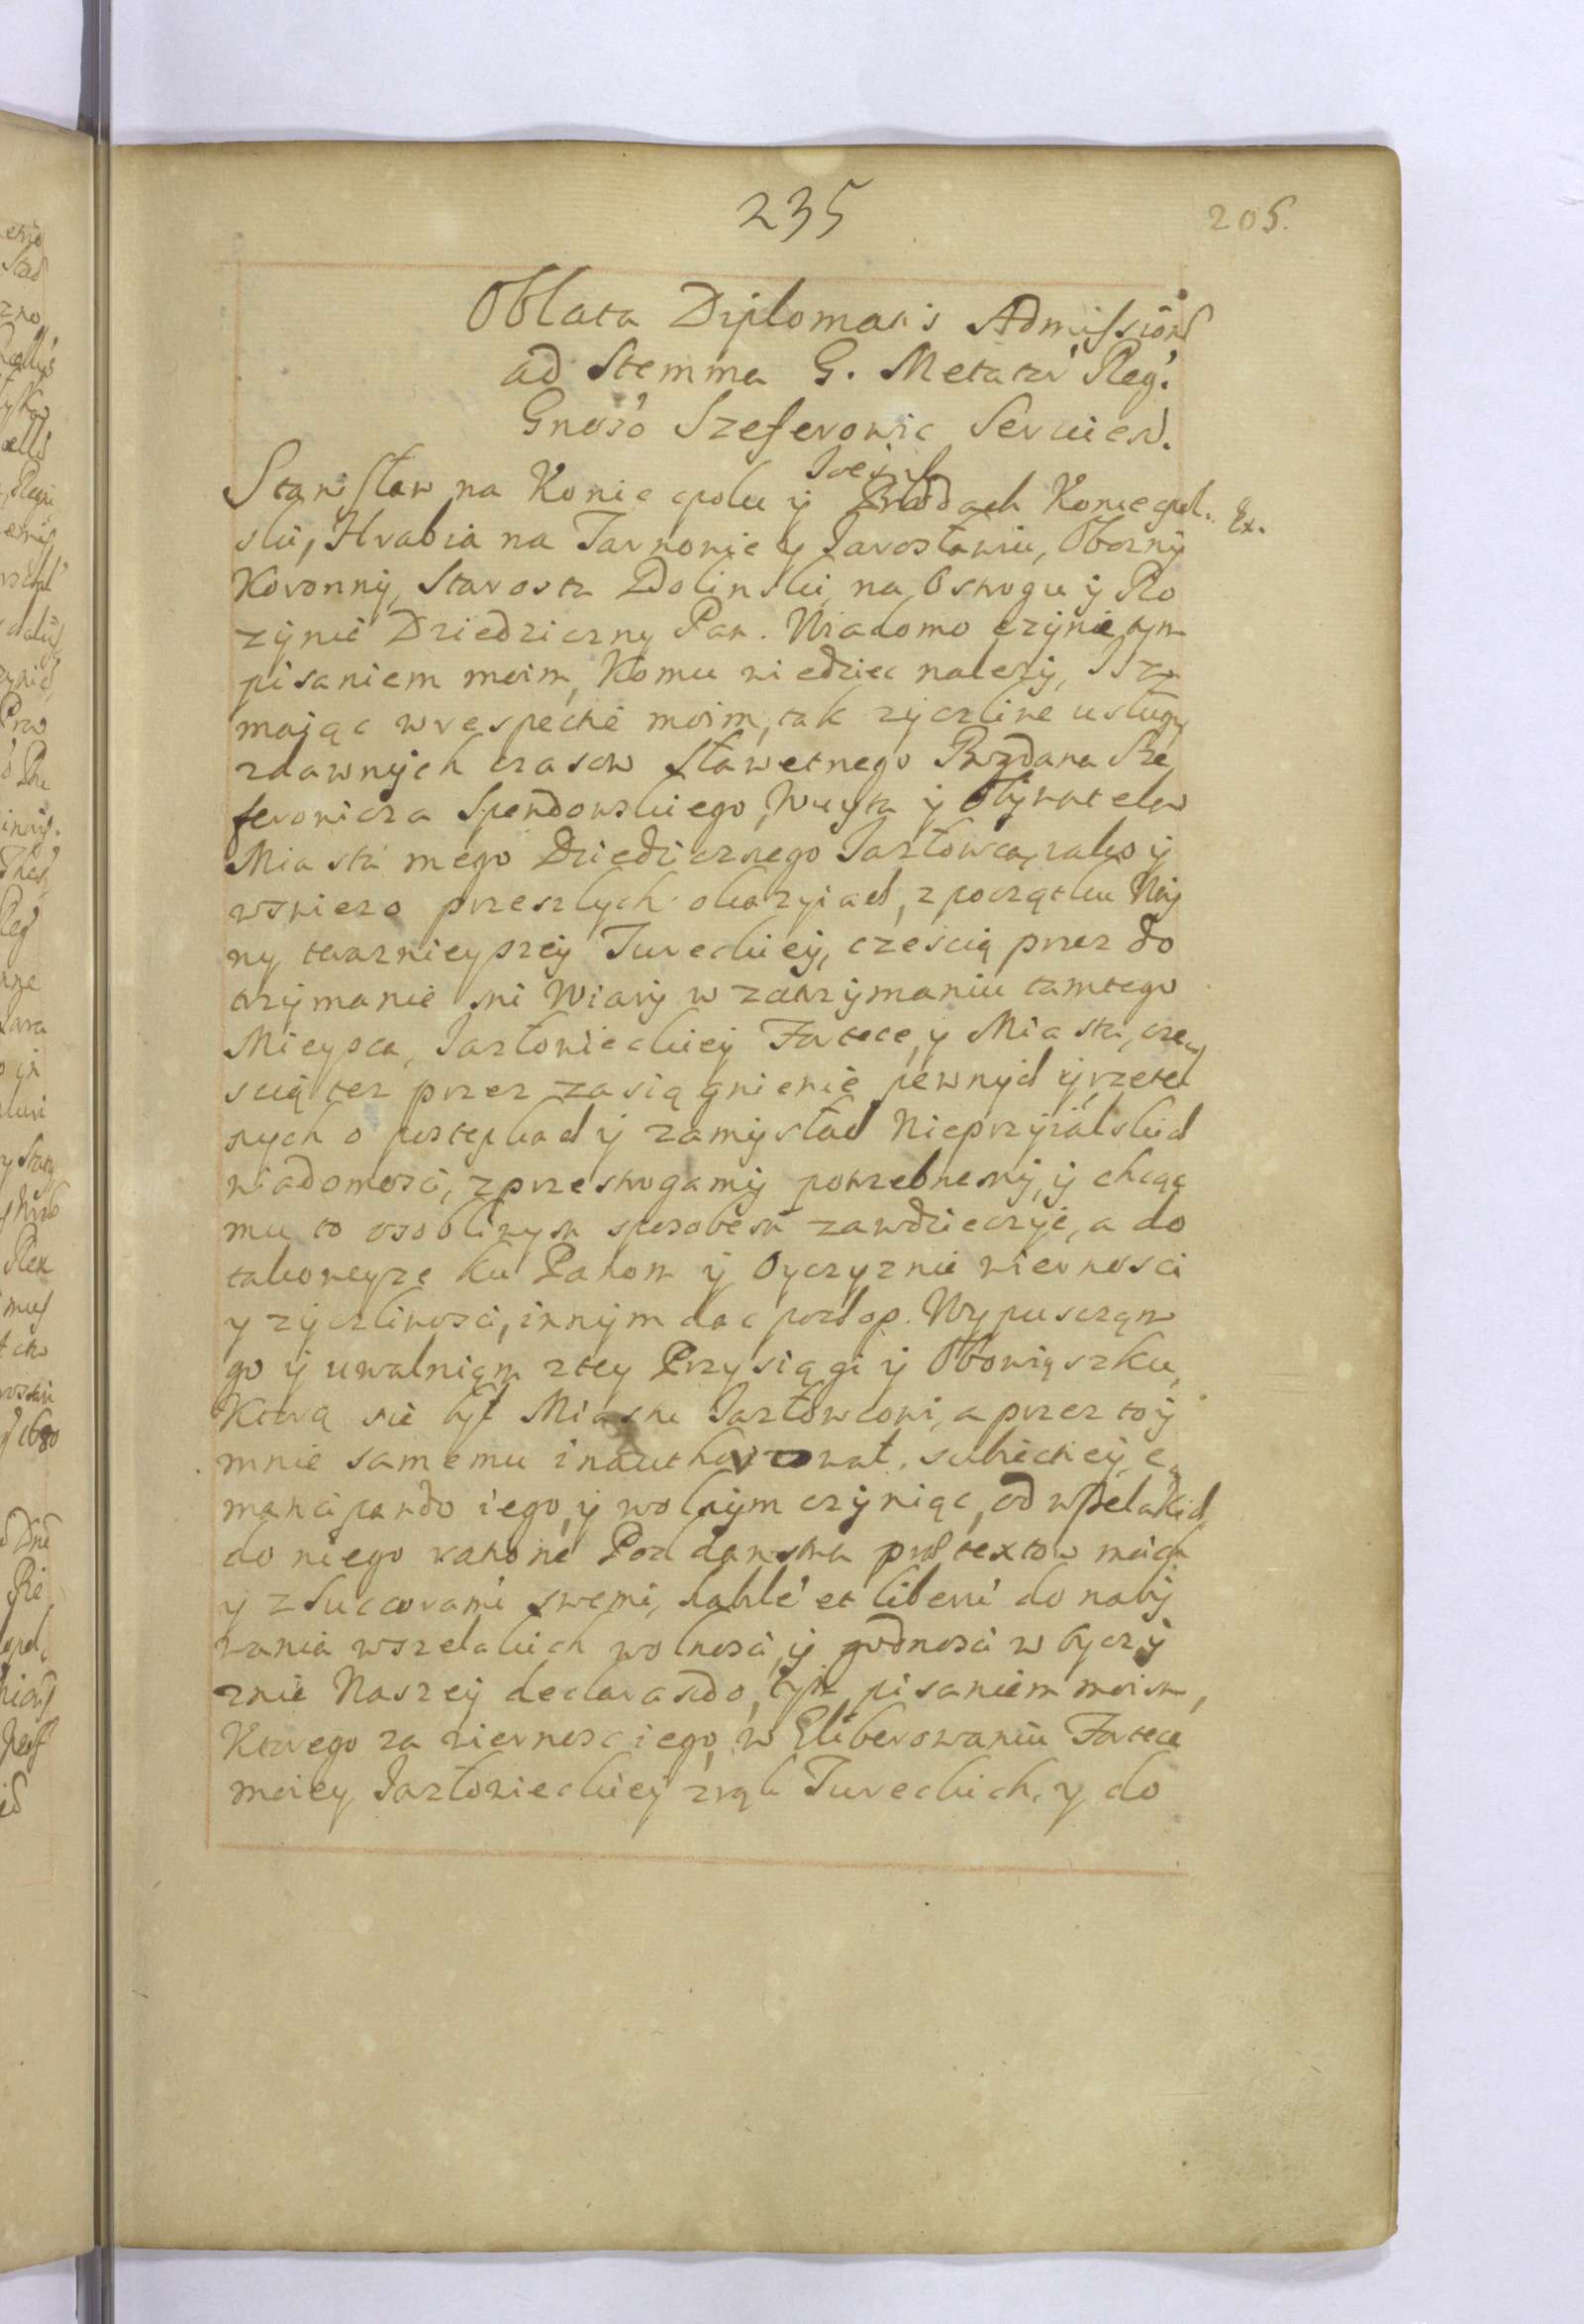 235
205.
Oblata Diplomatis Admissiönis
ad Stemma G. Metatri Reg.
Gnoso Szeferowic Serviens.
Stanisław na Koniecpolu ÿ Brodach Koniecpol. Ex.
ski, Hrabia na Tarnowie y Jarosławiu, Obozny
Koronnÿ, Starosta Dolinski, na Ostrogu ÿ Ro
zÿnie Dziedziczny Pan. Wiadomo czÿnie tym
pisaniem moim, Komu wiedziec nalezÿ, Isz
maiąc w respećie moim, tak zÿczliwe usługi
zdawnÿch czasow sławetnego Bogdana Sze
ferowicza Spendowskiego, Woyta ÿ Obÿwatela
Miasta mego Dziedzicznego Jazłowca, iako ÿ
wswiezo przeszlych okazyiach, z początku Woÿ
ny teraznieyszeÿ Tureckieÿ, cześcią przez do
trzÿmanie mi Wiarÿ w zatrzÿmaniu tamtego
Mieysca, Jazłowieckieÿ Fortece, y Miasta, cze
scią tez przez zasiągnienie pewnych ÿ rzetel
nych o postepkach ÿ zamÿsłach Nieprzÿialskich
wiadomosci, z przestrogamÿ potrzebnemÿ, ÿ chcąc
mu to osobliwym sposobem zawdzieczyc, a do
takoweysze ku Panom ÿ Oyczyznie wiernosci
y zÿczliwosci, innÿm dac pochop. Wypuscząm
go ÿ uwalniąm ztey Przysiągi ÿ Obowiąszku,
Ktorą sie bÿł Miastu Jazłowcowi, a przez to ÿ
mnie samemu inauthorował, subiectieÿ, e
mancipando iego, ÿ wolnÿm czÿniąc, od wszelakich
do niego ratione Poddanstwa prætextow moich
y z Succorami swemi, hablé et liberé do nabÿ
wania wszelakich wolnosci, ÿ godnosci w Oyczÿ
znie Naszeÿ declarando, tÿm pisaniem moim,
Ktorego za wiernosc iego, w Eliberowaniu Fortece
moiey Jazłowieckieÿ z rąk Tureckich, y do